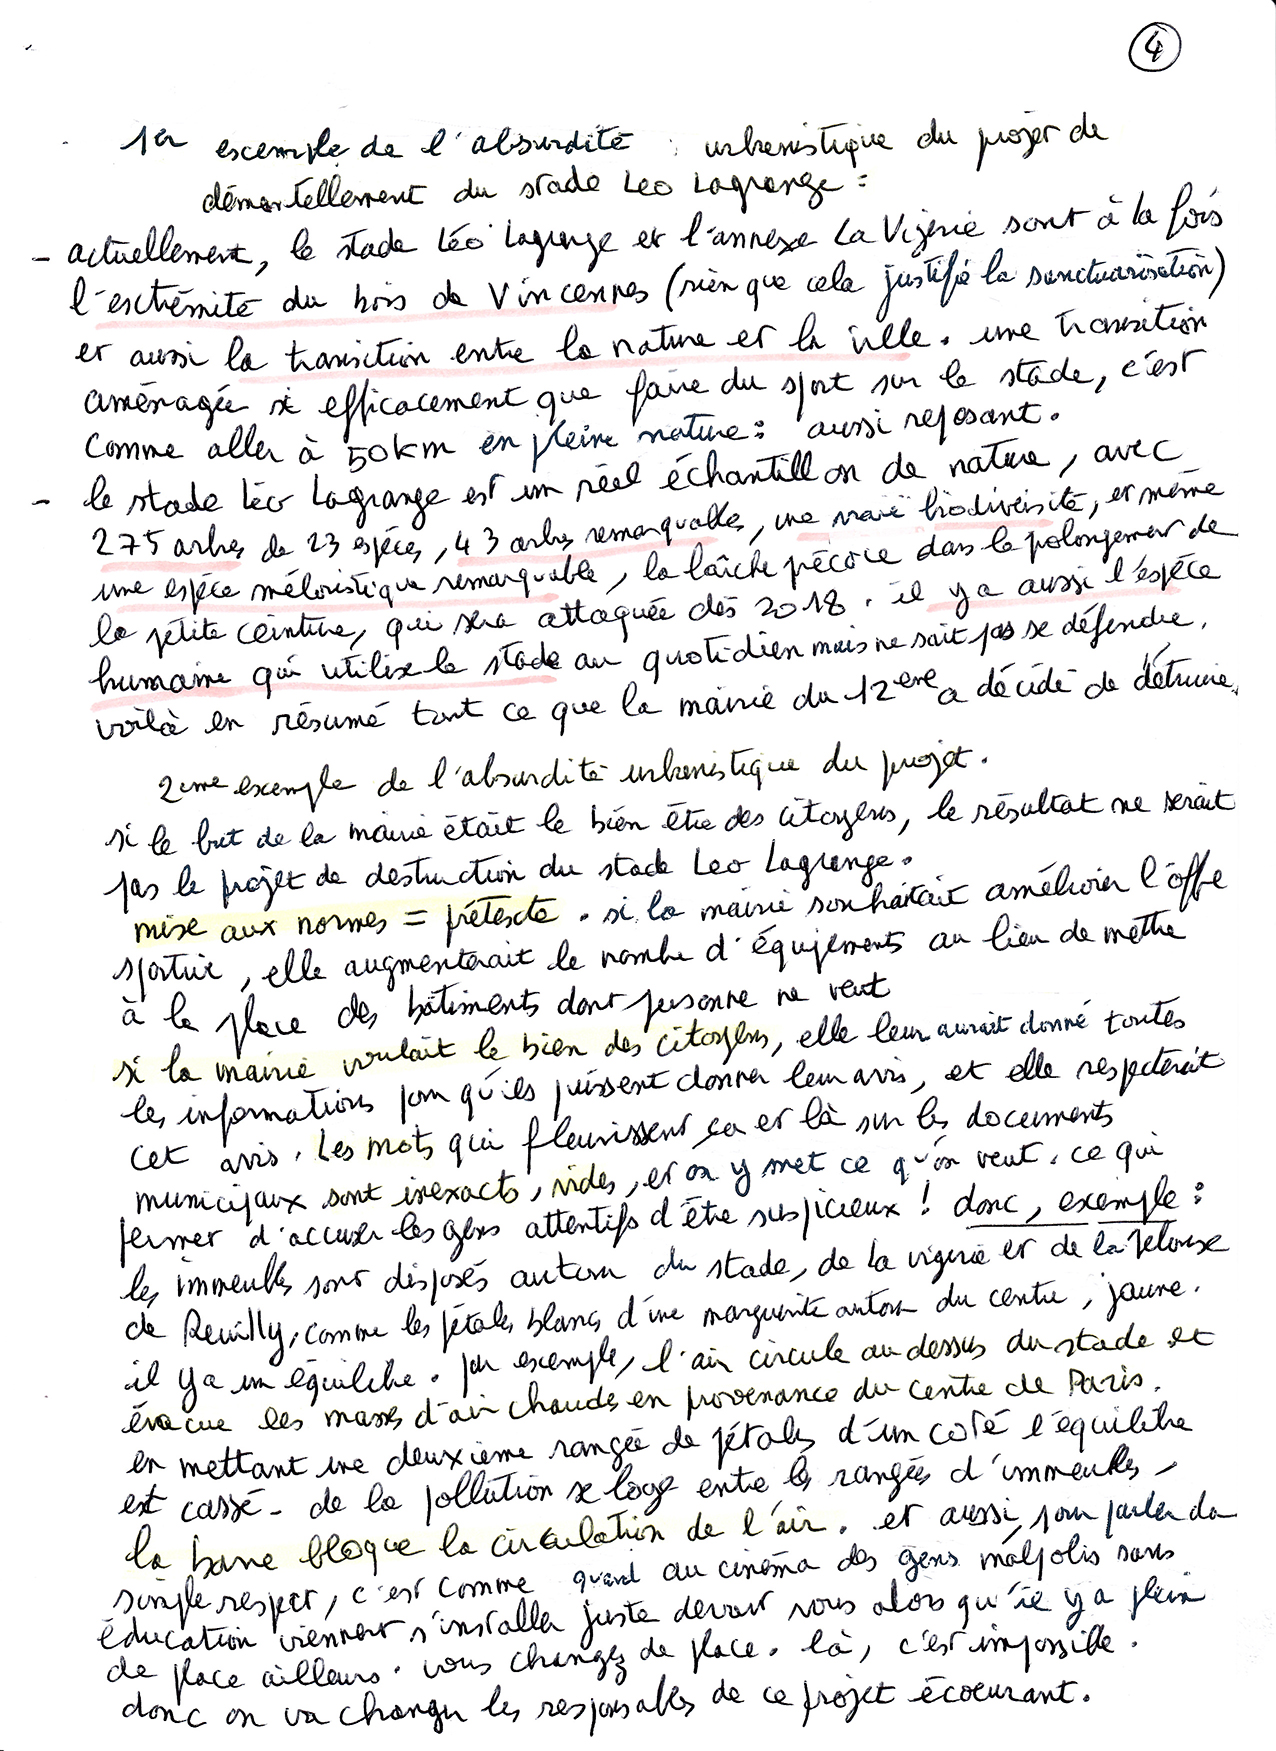 4
1er exemple de l'absurdité urbanistique du projet de
démantellement du stade Leo Lagrange :
- actuellement, le stade Léo Lagrange et l'annexe La Vigerie sont à la fois
l'extrémité du bois de Vincennes (rien que cela justifie la sanctuarisation)
et aussi la transition entre la nature et la ville. une transition
aménagée si efficacement que faire du sport sur le stade, c'est
comme aller à 50km en pleine nature : aussi reposant.
- le stade Léo Lagrange est un réel échantillon de nature, avec
275 arbres de 23 espèces, 43 arbres remarquables, une vraie biodiversité, et même
une espèce méloristique remarquable, la laîche précoce dans le prolongement de
la petite ceinture, qui sera attaquée dès 2018. il y a aussi l'espèce
humaine qui utilise le stade au quotidien mais ne sait pas se défendre.
voilà en résumé tout ce que la mairie du 12ème a décidé de détruire.
2ème exemple de l'absurdité urbanistique du projet.
si le but de la mairie était le bien être des citoyens, le résultat ne serait
pas le projet de destruction du stade Leo Lagrange.
mise aux normes = prétexte. si la mairie souhaitait améliorer l'offre
sportive, elle augmenterait le nombre d'équipements au lieu de mettre
à la place des bâtiments dont personne ne veut
si la mairie voulait le bien des citoyens, elle leur aurait donné toutes
les informations pour qu'ils puissent donner leur avis, et elle respecterait
cet avis. Les mots qui fleurissent ça et là sur les documents
municipaux sont inexacts, vides, et on y met ce qu'on veut. ce qui
permet d'accuser les gens attentifs d'être suspicieux ! donc, exemple :
les immeubles sont disposés autour du stade, de la vigerie et de la Pelouse
de Reuilly, comme les pétales blancs d'une marguerite autour du centre, jaune.
il y a un équilibre. par exemple, l'air circule au dessus du stade et
évacue les masses d'air chaudes en provenance du centre de Paris.
en mettant une deuxième rangée de pétales d'un coté l'équilibre
est cassé - de la pollution se loge entre les rangées d'immeubles,
la barre bloque la circulation de l'air. et aussi, pour parler du
simple respect, c'est comme quand au cinéma des gens malpolis sans
éducation viennent s'installer juste devant vous alors qu'il y a plein
de place ailleurs. vous changez de place. là, c'est impossible.
donc on va changer les responsables de ce projet écoeurant.